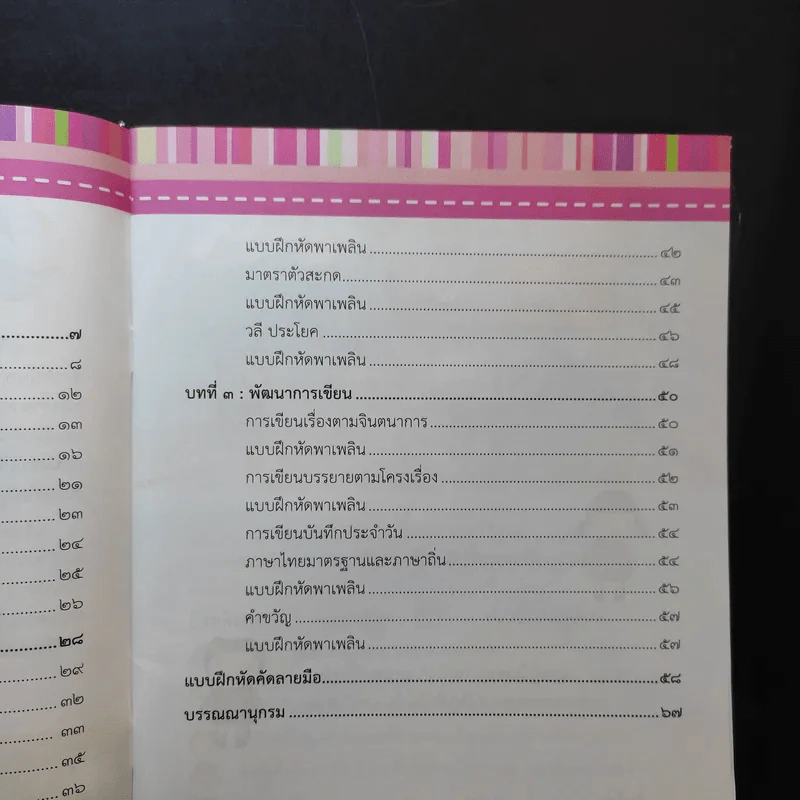 ๗
๘
๑๒
๑๓
๑๖
๒๑
๒๓
๒๔
๒๕
๒๖
๒๘
๒๙
๓๒
๓๓
๓๕
๓๖
แบบฝึกหัดพาเพลิน ๔๒
มาตราตัวสะกด ๔๓
แบบฝึกหัดพาเพลิน ๔๕
วลี ประโยค ๔๖
แบบฝึกหัดพาเพลิน ๔๘
บทที่ ๓ : พัฒนาการเขียน ๕๐
การเขียนเรื่องตามจินตนาการ ๕๐
แบบฝึกหัดพาเพลิน ๕๑
การเขียนบรรยายตามโครงเรื่อง ๕๒
แบบฝึกหัดพาเพลิน ๕๓
การเขียนบันทึกประจำวัน ๕๔
ภาษาไทยมาตรฐานและภาษาถิ่น ๕๔
แบบฝึกหัดพาเพลิน ๕๖
คำขวัญ ๕๗
แบบฝึกหัดพาเพลิน ๕๗
แบบฝึกหัดคัดลายมือ ๕๘
บรรณณานุกรม ๖๗